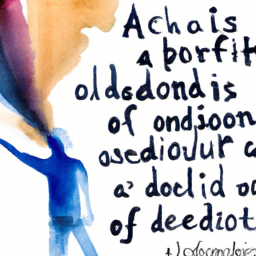 Achais
a porfit
oldedond is
of ondjoon
osediovur a
a' doclid o
of deediot